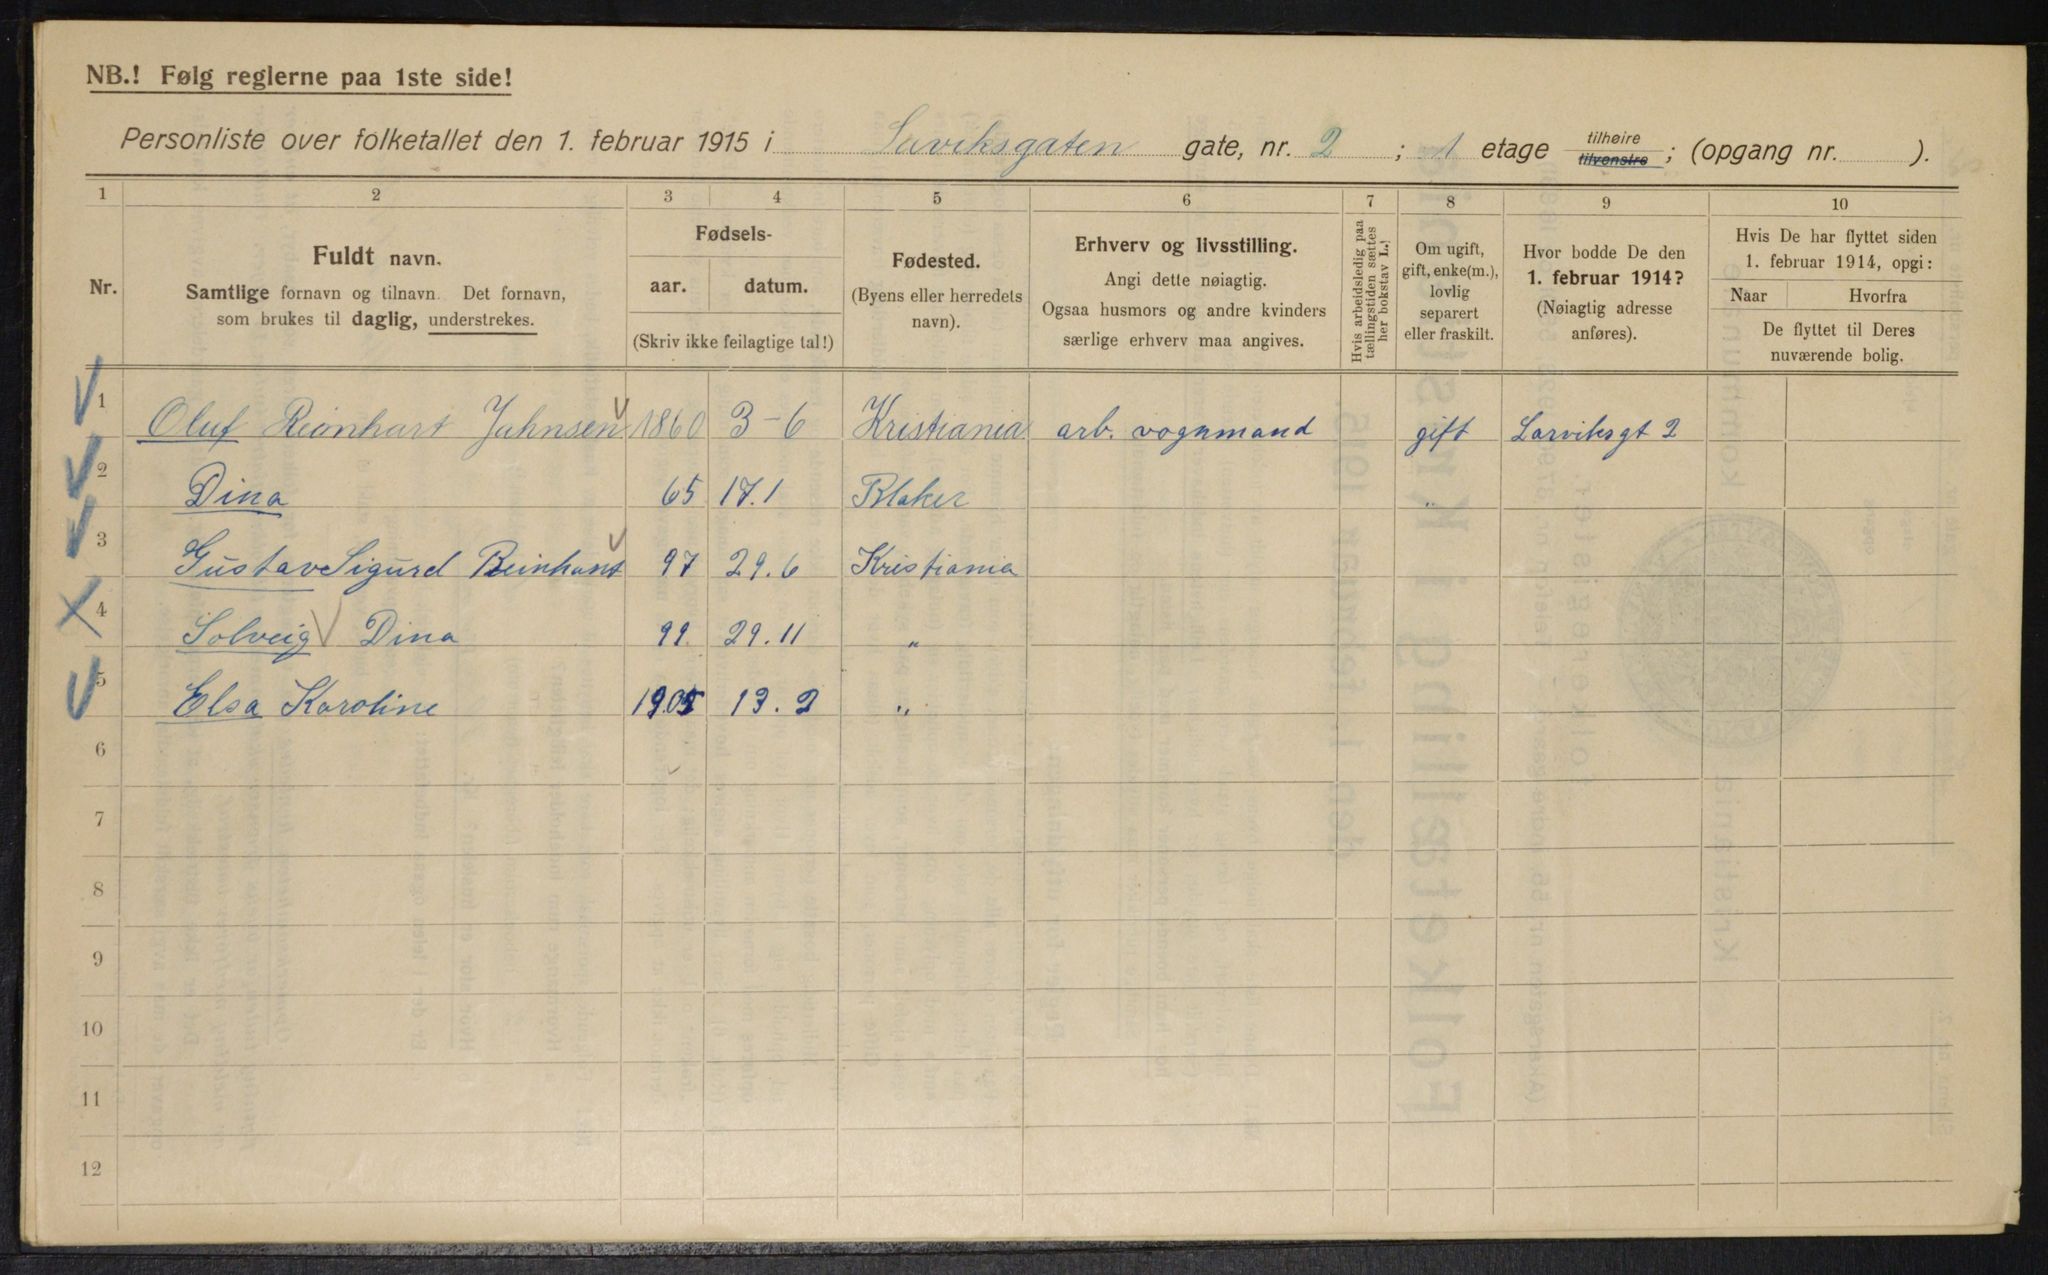 NB.! Følg reglerne paa 1ste side!
Personliste over folketallet den 1. februar 1915 i Larviksgaten gate, nr. 2 ; 1 etage tilhøire tilvenstre ; (opgang nr. ).
1 2 3 4 5 6 7 8 9 10
Nr.
Fuldt navn.
Samtlige fornavn og tilnavn. Det fornavn,
som brukes til daglig, understrekes.
Fødsels-
aar. datum.
(Skriv ikke feilagtige tal!)
Fødested.
(Byens eller herredets
navn).
Erhverv og livsstilling.
Angi dette nøiagtig.
Ogsaa husmors og andre kvinders
særlige erhverv maa angives.
Hvis arbeidsledig paa
tællingstiden sættes
her bokstav L.!
Om ugift,
gift, enke(m.),
lovlig
separert
eller fraskilt.
Hvor bodde De den
1. februar 1914?
(Nøiagtig adresse
anføres).
Hvis De har flyttet siden
1. februar 1914, opgi:
Naar Hvorfra
De flyttet til Deres
nuværende bolig.
1 Oluf Reinhart Jahnsen 1860 3-6 Kristiania arb. vognmand gift Larviksgt 2
2 Dina 65 17.1 Blaker "
3 Gustav Sigurd Reinhart 97 29.6 Kristiania
4 Solveig Dina 99. 29.11 "
5 Elsa Karoline 1905 13.2 "
6
7
8
9
10
11
12